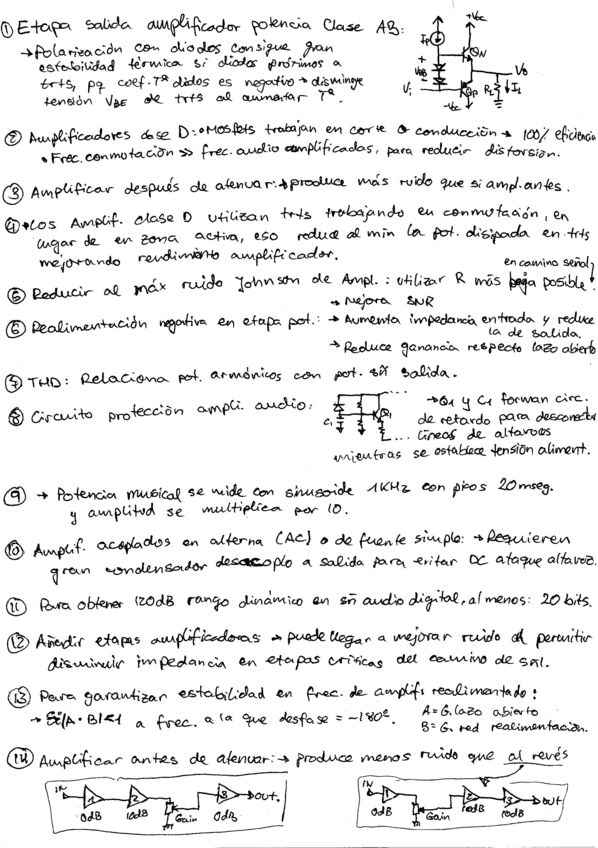 ① Etapa salida amplificador potencia Clase AB:
→ Polarización con diodos consigue gran
estabilidad térmica si diodos próximos a
trts, pq coef. Tª diodos es negativo → disminuye
tensión VBE de trts al aumentar Tª.
+Vcc
IP
QN
+
VBB
-
Vi
QP
-Vcc
Vo
RL
IL
② Amplificadores clase D: • Mosfets trabajan en corte o conducción → 100% eficiencia
• Frec. conmutación >> frec. audio amplificadas, para reducir distorsión.
③ Amplificar después de atenuar: → produce más ruido que si ampl. antes.
④ • Los Amplif. clase D utilizan trts trabajando en conmutación, en
lugar de en zona activa, eso reduce al min la pot. disipada en trts
mejorando rendimiento amplificador.
en camino señal
⑤ Reducir al máx ruido Johnson de Ampl.: utilizar R más baja posible.
→ Mejora SNR
⑥ Realimentación negativa en etapa pot.: → Aumenta impedancia entrada y reduce
la de salida.
→ Reduce ganancia respecto lazo abierto
⑦ THD: Relaciona pot. armónicos con pot. sñl salida.
⑧ Circuito protección ampli. audio:
C1
Q1
→ Q1 y C1 forman circ.
de retardo para desconectar
líneas de altavoces
mientras se establece tensión aliment.
⑨ → Potencia musical se mide con sinusoide 1KHz con picos 20mseg.
y amplitud se multiplica por 10.
⑩ Amplif. acoplados en alterna (AC) o de fuente simple: → Requieren
gran condensador desacoplo a salida para evitar DC ataque altavoz.
⑪ Para obtener 120dB rango dinámico en sñ audio digital, al menos: 20 bits.
⑫ Añadir etapas amplificadoras → puede llegar a mejorar ruido al permitir
disminuir impedancia en etapas críticas del camino de sñl.
⑬ Para garantizar estabilidad en frec. de amplifs realimentado:
→ |A·B|<1 a frec. a la que desfase = ~180º.
A = G. lazo abierto
B = G. red realimentación.
⑭ Amplificar antes de atenuar: → produce menos ruido que al revés
IN 1 0dB 2 10dB Gain 3 0dB OUT.
IN 1 0dB Gain 2 10dB 3 10dB OUT